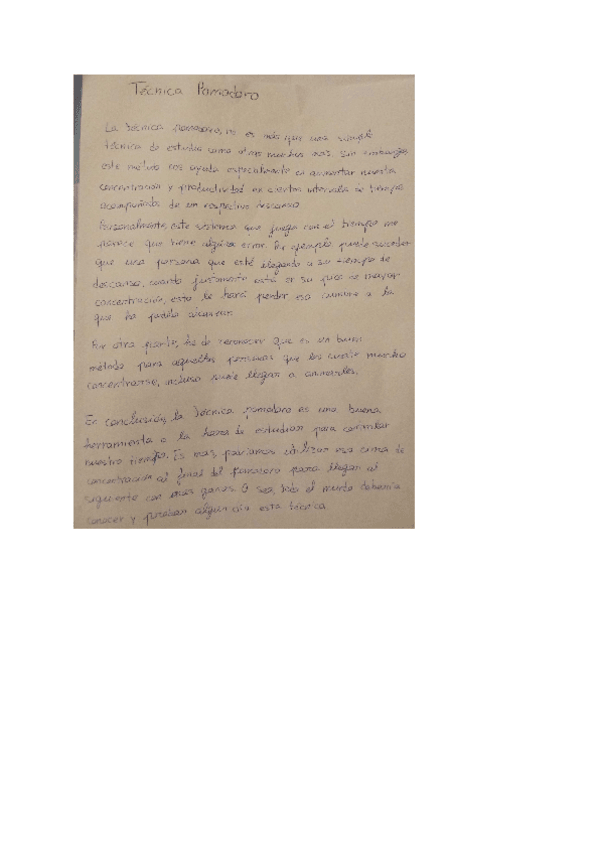 Técnica Pomodoro
La técnica pomodoro, no es más que una simple
técnica de estudios como otras muchas más. Sin embargo,
este método nos ayuda especialmente en aumentar nuestra
concentración y productividad en ciertos intervalos de tiempo
acompañados de un respectivo descanso.
Personalmente, este sistema que juega con el tiempo me
parece que tiene algún error. Por ejemplo puede suceder
que una persona que esté llegando a su tiempo de
descanso, cuando justamente está en su pico de mayor
concentración, esto le hará perder esa cumbre a la
que ha podido alcanzar.
Por otra parte, he de reconocer que es un buen
método para aquellas personas que les cueste mucho
concentrarse, incluso suele llegar a animarles.
En conclusión, la técnica pomodoro es una buena
herramienta a la hora de estudiar para controlar
nuestro tiempo. Es más podríamos utilizar esa cima de
concentración al final del pomodoro para llegar al
siguiente con más ganas. O sea, todo el mundo debería
conocer y probar algún día esta técnica.